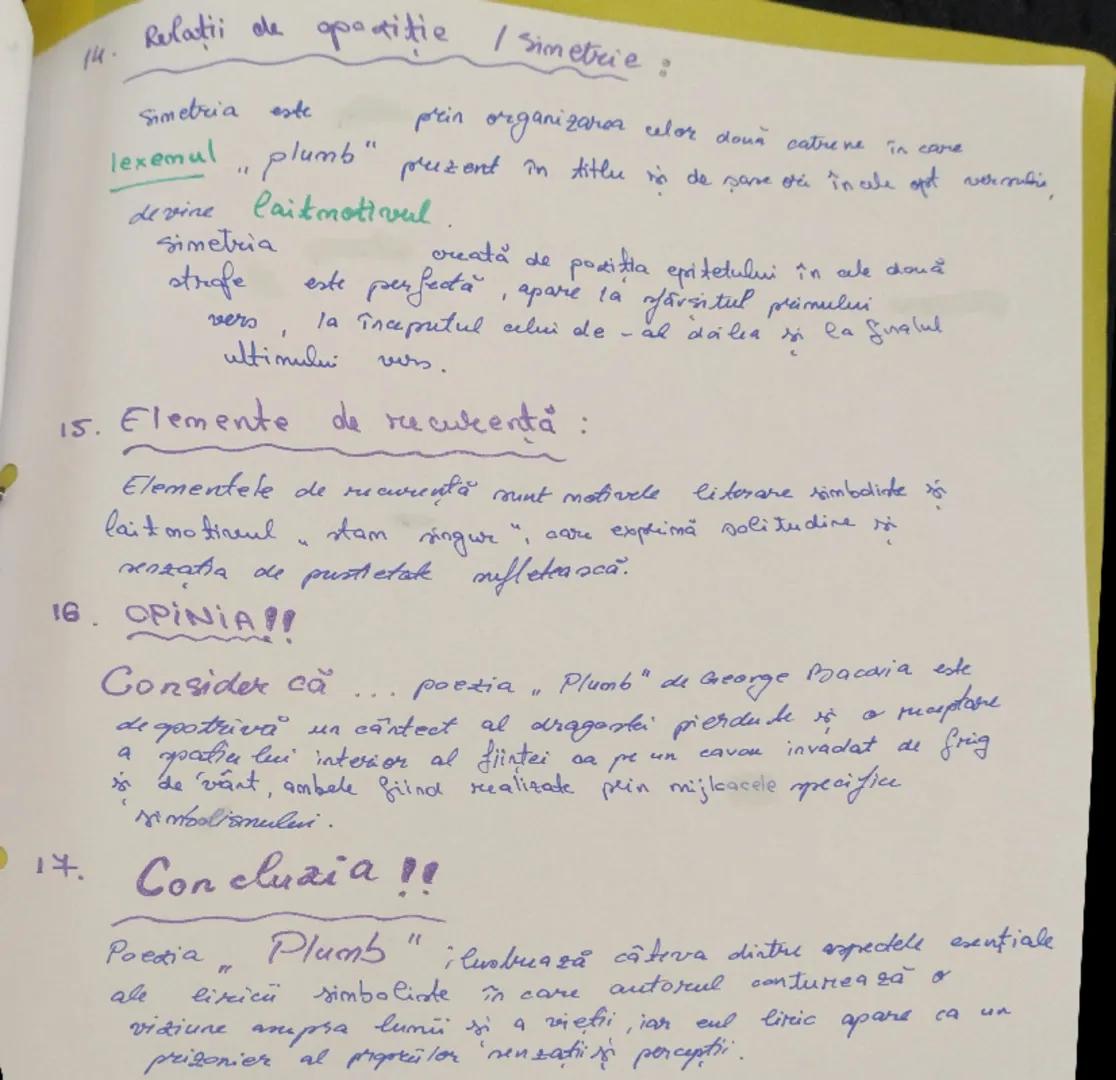 14. Relații de opoziție / simetrie :
Simetria este prin organizarea celor două catrene în care
lexemul „plumb" prezent în titlu și de șase ori în cele opt versuri,
devine laitmotivul.
simetria creată de poziția epitetului în cele două
strofe este perfectă, apare la sfârșitul primului
vers, la începutul celui de-al doilea și la finalul
ultimului vers.
15. Elemente de recurență :
Elementele de recurență sunt motivele literare simboliste și
laitmotivul „stam singur", care exprimă solitudine și
senzația de pustietate sufletească.
16. OPINIA!!
Consider că ... poezia „Plumb" de George Bacovia este
deopotrivă un cântect al dragostei pierdute și o receptare
a spațiului interior al ființei ca pe un cavou invadat de frig
și de vânt, ambele fiind realizate prin mijloacele specifice
simbolismului.
17. Concluzia !!
Poezia „Plumb" ilustrează câteva dintre aspectele esențiale
ale liricii simboliste în care autorul conturează o
viziune asupra lumii și a vieții, iar eul liric apare ca un
prizonier al propriilor senzații și percepții.